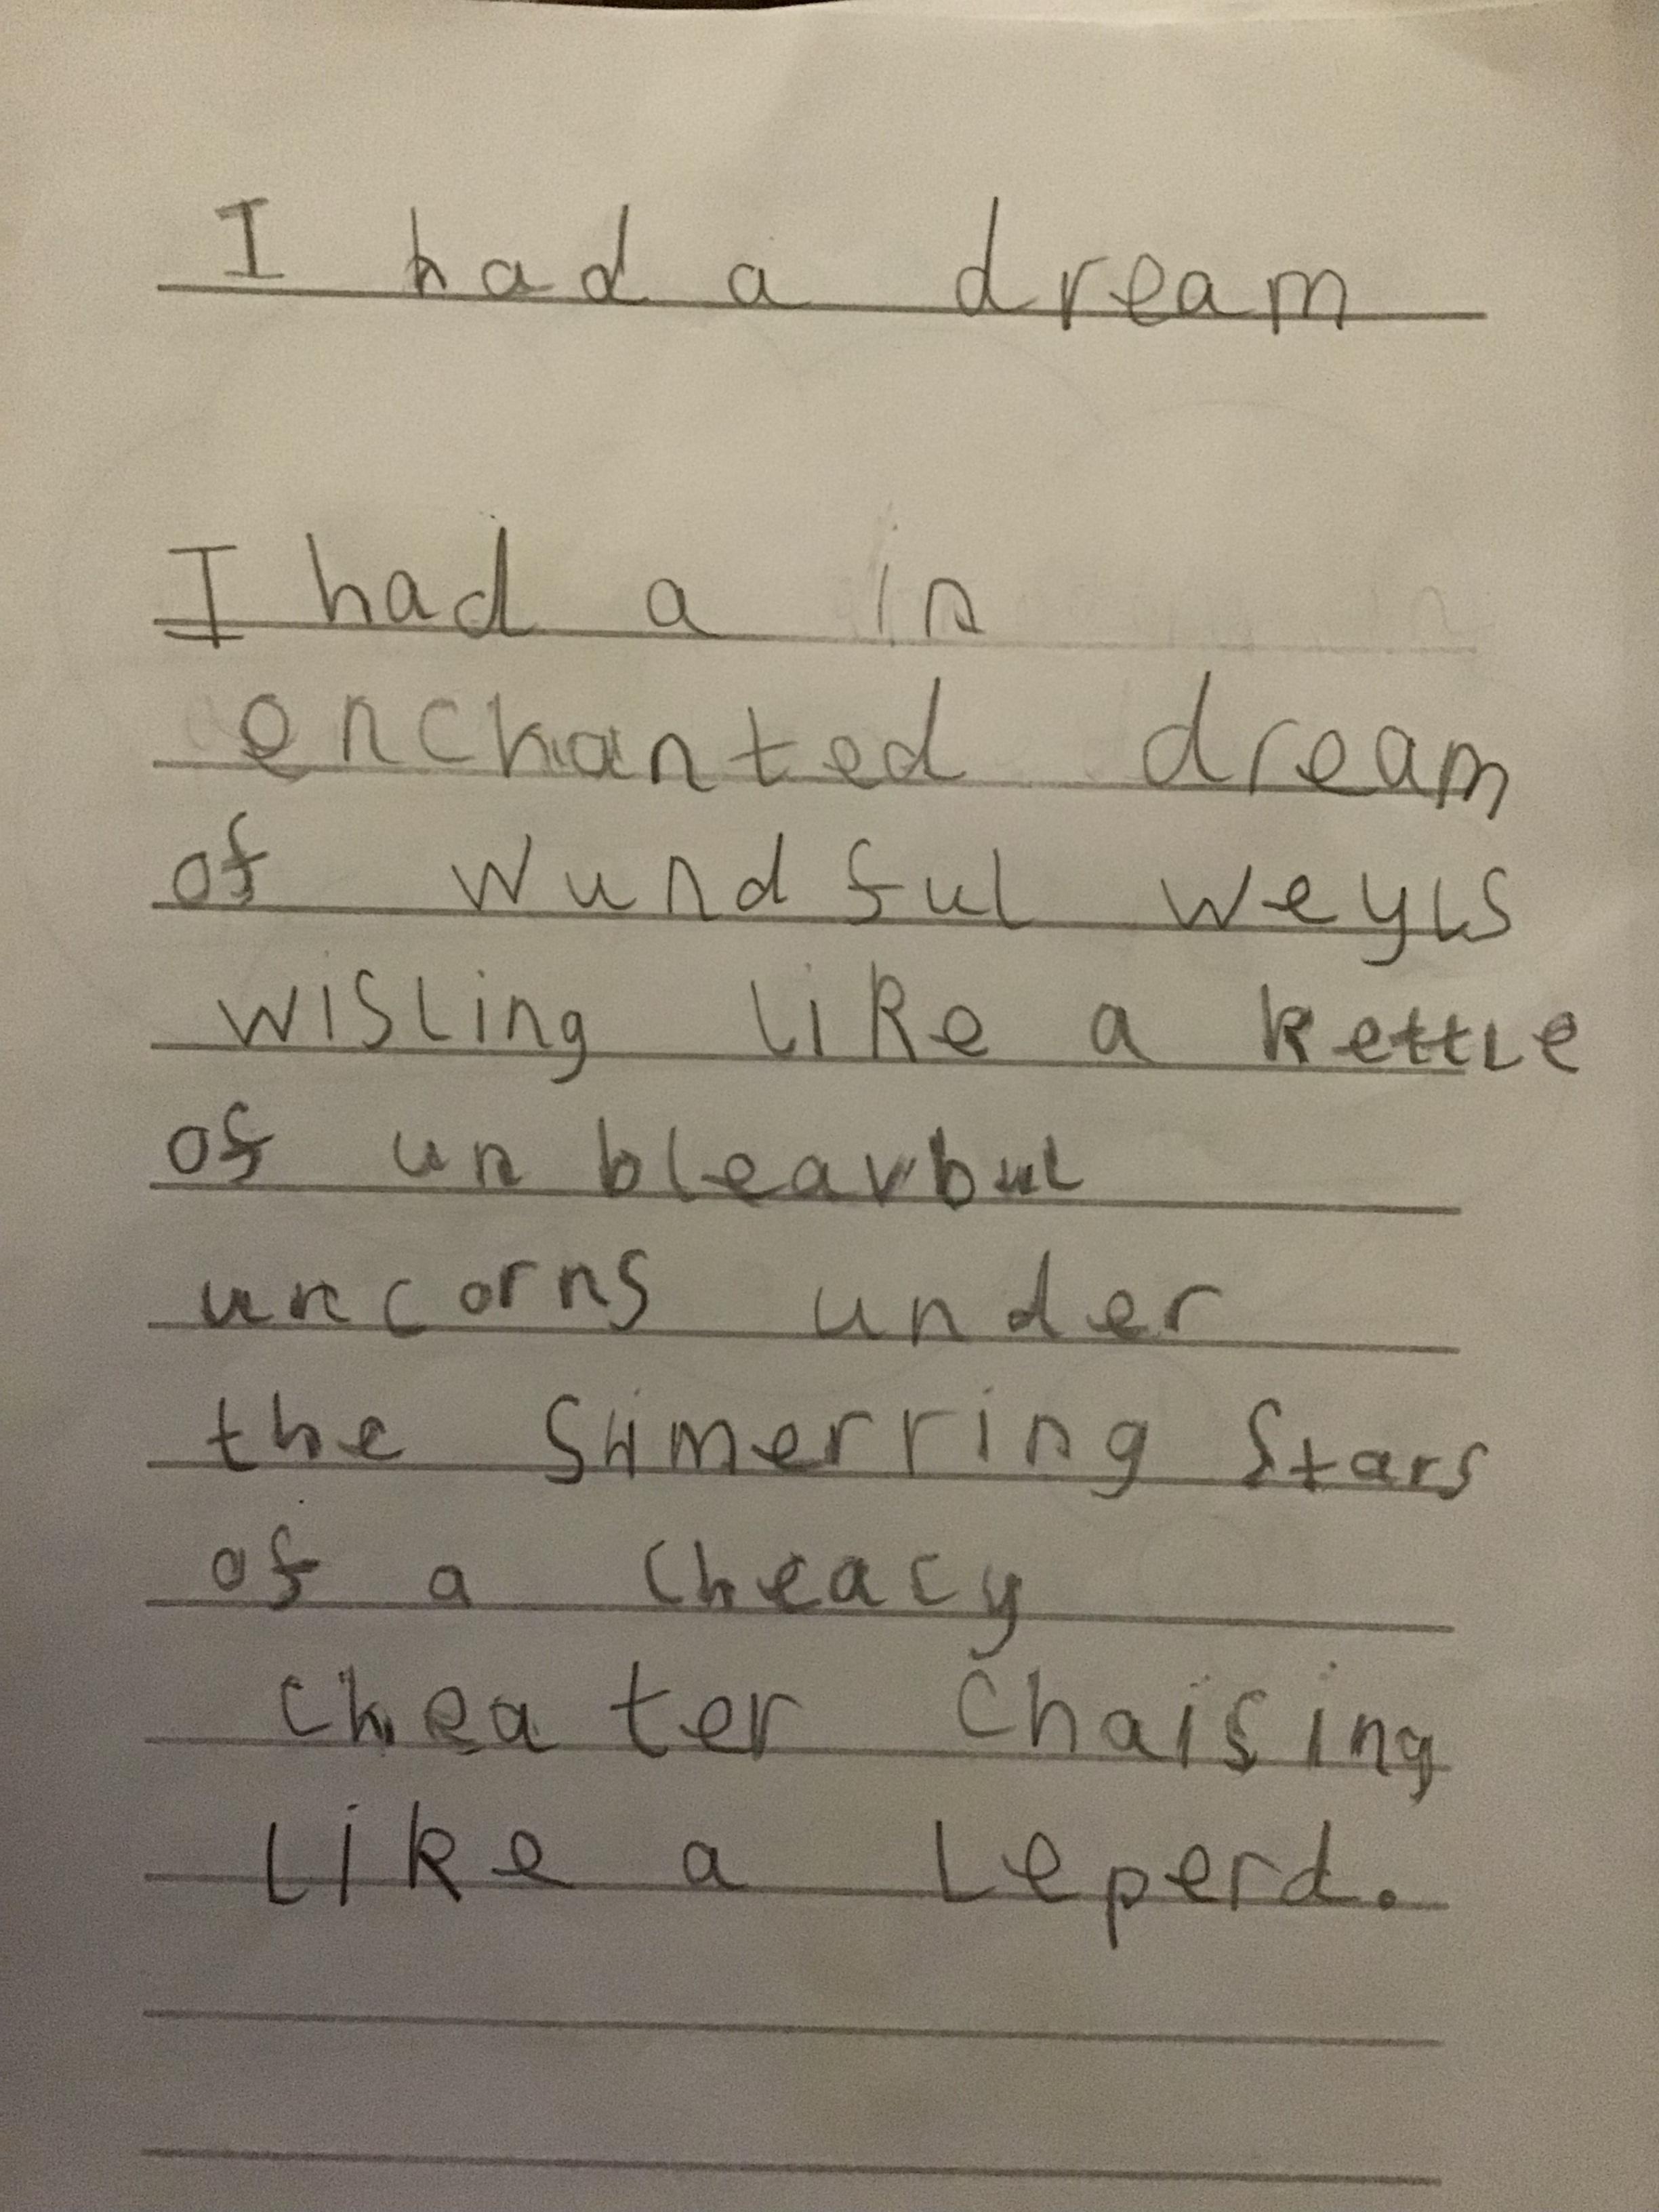 I had a dream
I had a in
enchanted dream
of wundful weyls
wisling like a kettle
of un bleavbul
uncorns under
the shimerring stars
of a cheacy
cheater chaising
like a leperd.